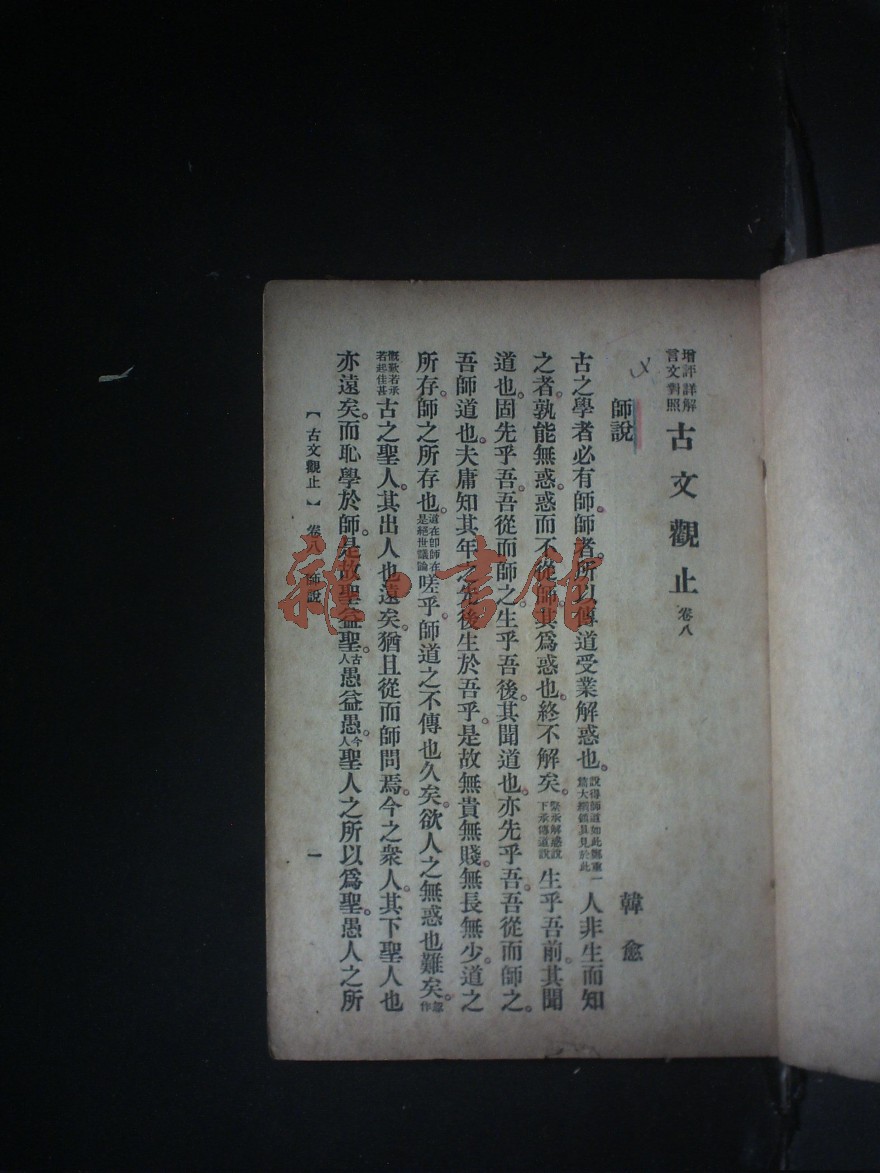 增評詳解
言文對照
古文觀止 卷八
師說 韓愈
古之學者必有師。師者。所以傳道受業解惑也。說得師道如此鄭重一篇大綱領具見於此人非生而知
之者。孰能無惑。惑而不從師。其爲惑也。終不解矣。緊承解惑說下承傳道說生乎吾前。其聞
道也。固先乎吾。吾從而師之。生乎吾後。其聞道也。亦先乎吾。吾從而師之。
吾師道也。夫庸知其年之先後生於吾乎。是故無貴無賤。無長無少。道之
所存。師之所存也。道在卽師在是絕世議論嗟乎。師道之不傳也久矣。欲人之無惑也難矣。忽作
慨歎若承若起佳甚古之聖人。其出人也遠矣。猶且從而師問焉。今之衆人。其下聖人也
亦遠矣。而恥學於師。是故聖益聖。古人愚益愚。今人聖人之所以爲聖。愚人之所
【古文觀止】 卷八 師說 一
雜·書館